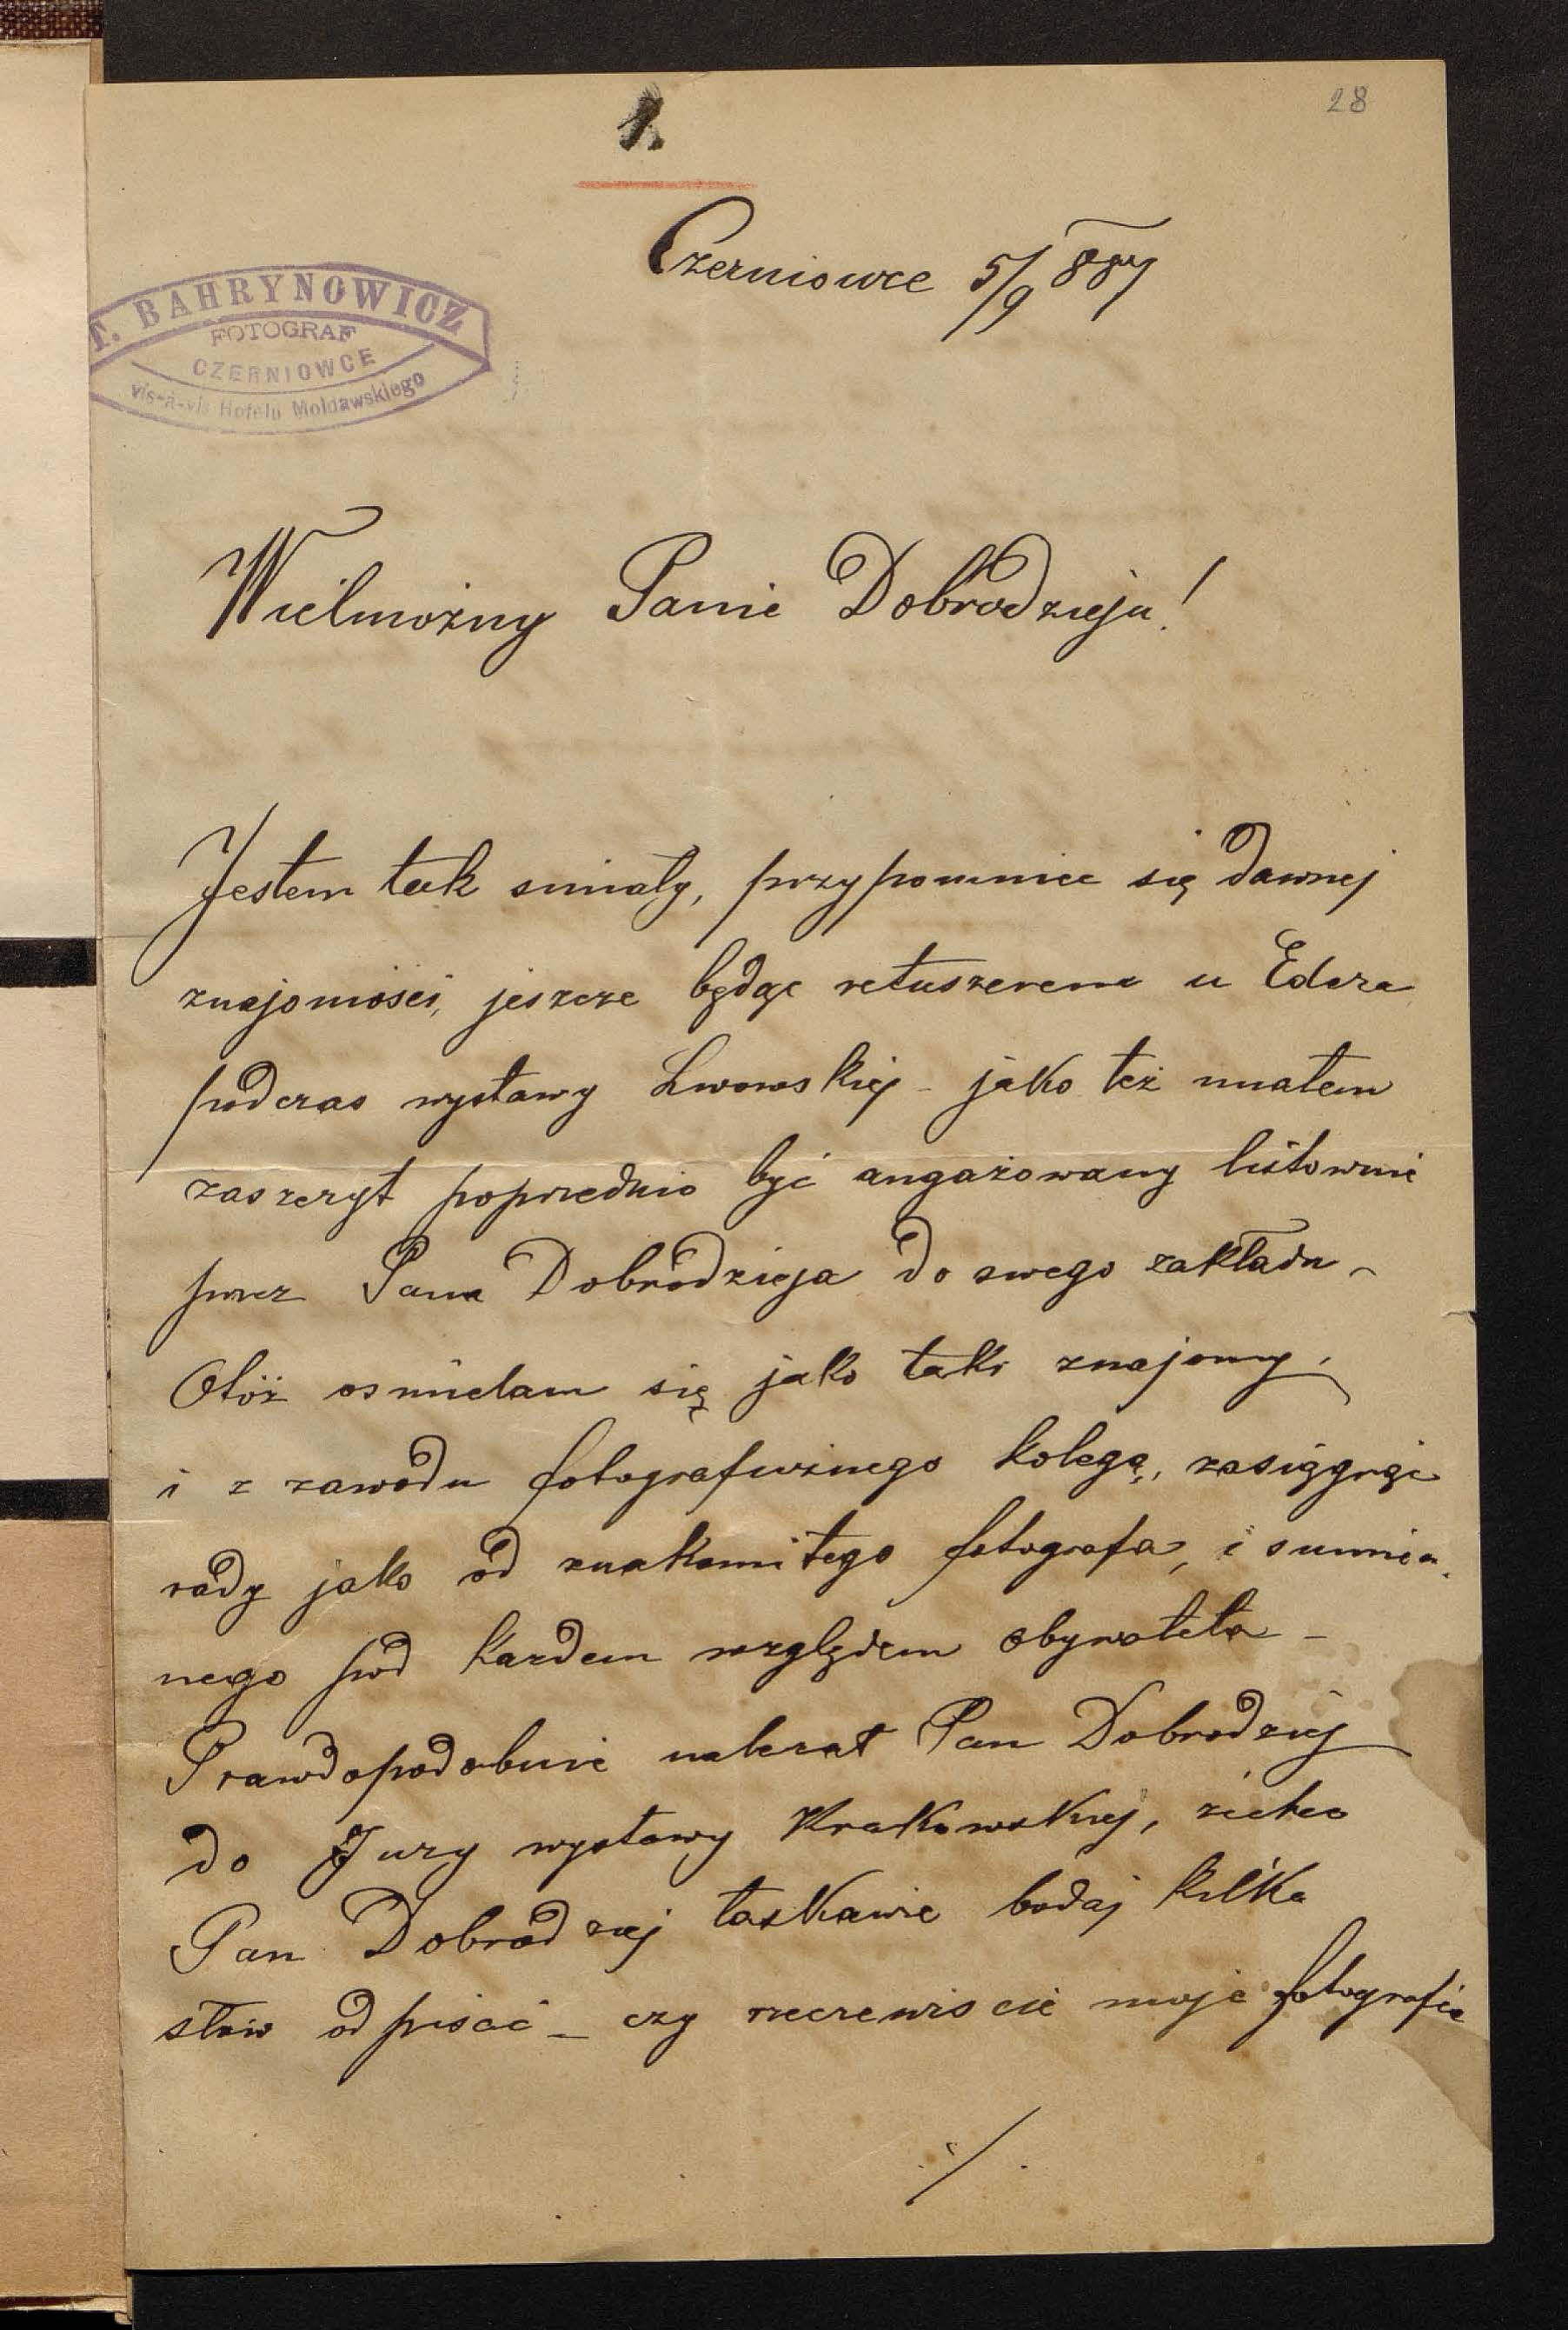 28
1.
Czerniowce 5/9 887
T. BAHRYNOWICZ
FOTOGRAF
CZERNIOWCE
vis-à-vis Hotelu Mołdawskiego
Wielmożny Panie Dobrodzieju!
Jestem tak smiały, przypomniec się dawnej
znajomości, jeszcze będąc retuszerem u Edera
podczas wystawy Lwowskiej – jako też miałem
zaszczyt poprzednio być angażowany listownie
przez Pana Dobrodzieja do swego zakładu –
Otóż osmielam się jako taki znajomy,
i z zawodu fotograficznego kolega, zasięgnąć
rady jako od znakomitego fotografa, i sumien
nego pod każdem względem obywatela –
Prawdopodobnie należał Pan Dobrodziej
do Jury wystawy Krakowskiej, ziechce
Pan Dobrodziej łaskawie bodaj kilka
słów odpisać – czy rzeczewiscie moje fotografie
./.